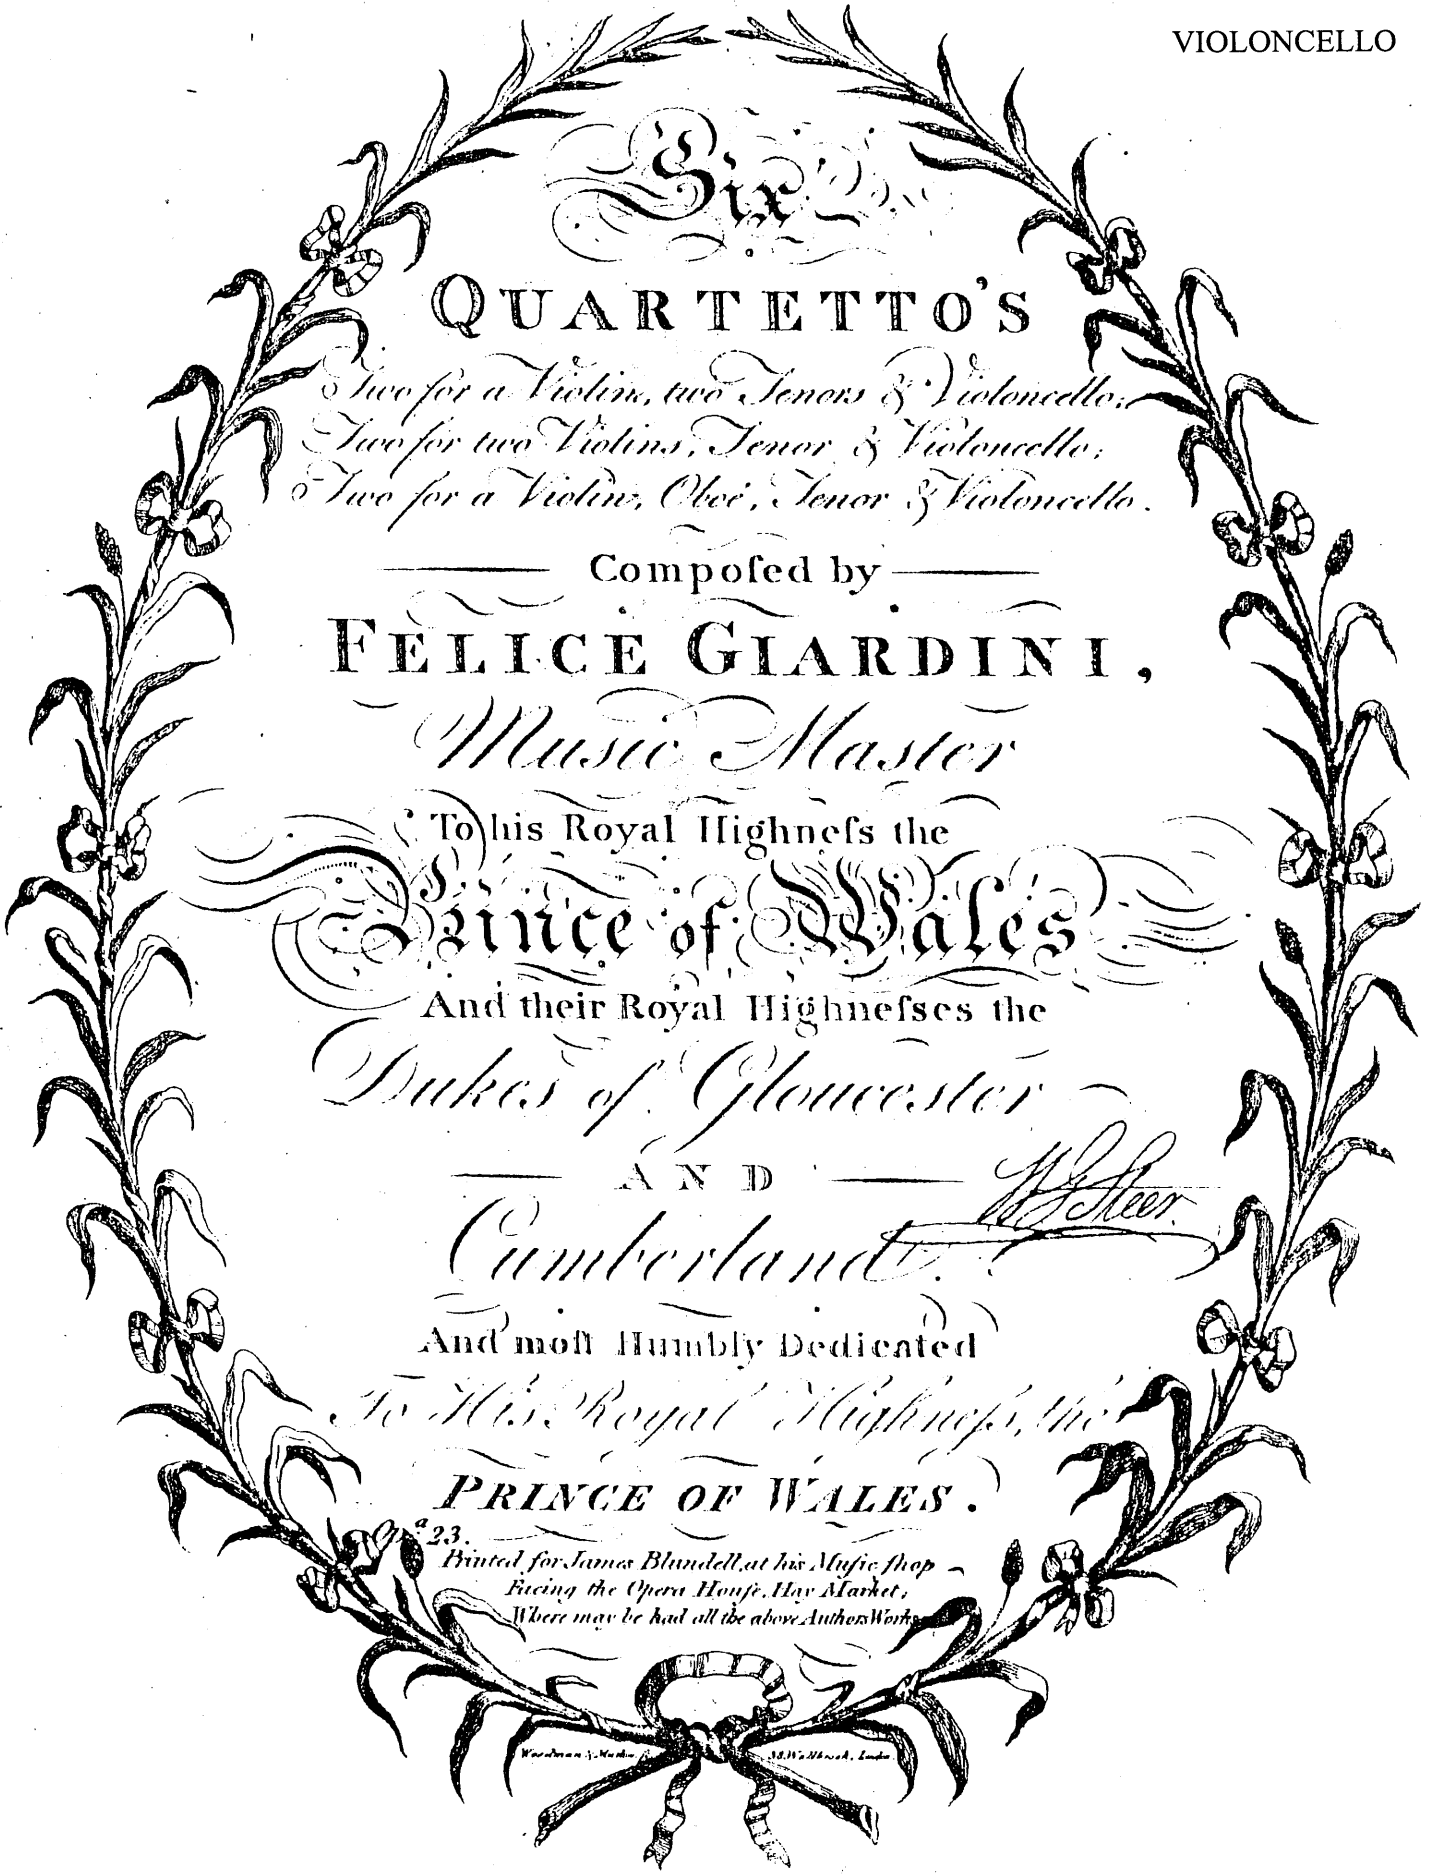 VIOLONCELLO
Six
QUARTETTO'S
Two for a Violin, two Tenors & Violoncello;
Two for two Violins, Tenor & Violoncello;
Two for a Violin, Oboe, Tenor & Violoncello.
Compoſed by
FELICE GIARDINI,
Music Master
To his Royal Highneſs the
Prince of Wales
And their Royal Highneſses the
Dukes of Gloucester
AND
W G Steer.
Cumberland.
And moſt Humbly Dedicated
To His Royal Highneſs, the
PRINCE OF WALES.
Op.ª 23.
Printed for James Blundell, at his Muſic ſhop
Facing the Opera Houſe, Hay Market;
Where may be had all the above Authors Works
Woodman & Mutlow
London